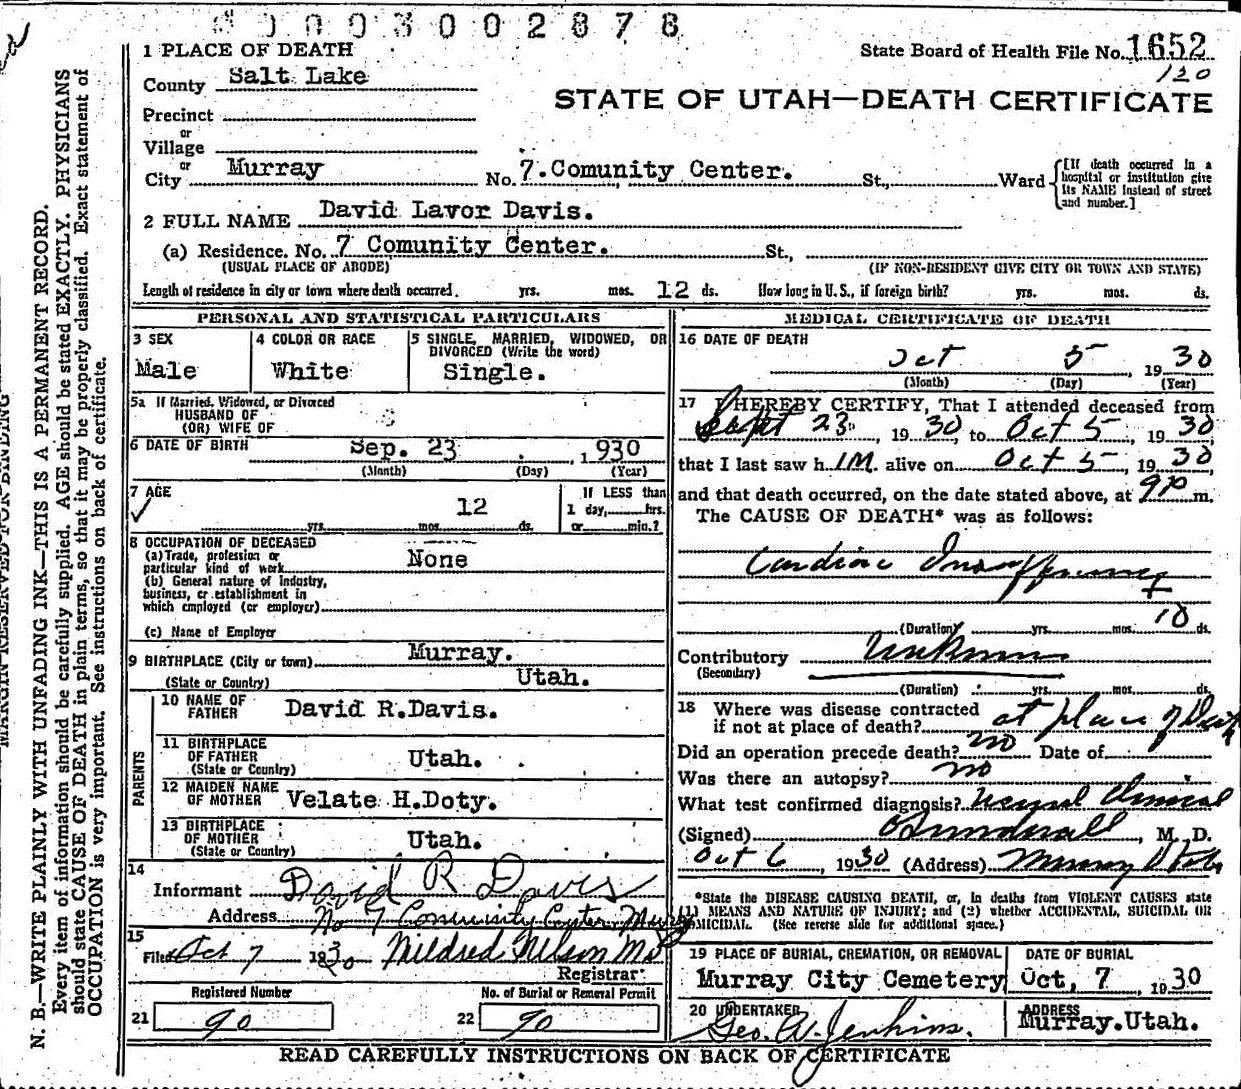 0003002878
1 PLACE OF DEATH
State Board of Health File No. 1652
120
County Salt Lake
STATE OF UTAH—DEATH CERTIFICATE
Precinct
or
Village
or
City Murray No. 7. Comunity Center. St., Ward
[If death occurred in a
hospital or institution give
its NAME instead of street
and number.]
2 FULL NAME David Lavor Davis.
(a) Residence. No. 7 Comunity Center. St.,
(USUAL PLACE OF ABODE) (IF NON-RESIDENT GIVE CITY OR TOWN AND STATE)
Length of residence in city or town where death occurred. yrs. mos. 12 ds. How long in U. S., if foreign birth? yrs. mos. ds.
PERSONAL AND STATISTICAL PARTICULARS
3 SEX
Male
4 COLOR OR RACE
White
5 SINGLE, MARRIED, WIDOWED, OR
DIVORCED (Write the word)
Single.
5a If Married, Widowed, or Divorced
HUSBAND OF
(OR) WIFE OF
6 DATE OF BIRTH Sep. 23 . 1930
(Month) (Day) (Year)
7 AGE
12
yrs. mos. ds.
If LESS than
1 day, hrs.
or min.?
8 OCCUPATION OF DECEASED
(a) Trade, profession or
particular kind of work None
(b) General nature of Industry,
business, or establishment in
which employed (or employer)
(c) Name of Employer
9 BIRTHPLACE (City or town) Murray.
(State or Country) Utah.
PARENTS
10 NAME OF
FATHER David R.Davis.
11 BIRTHPLACE
OF FATHER Utah.
(State or Country)
12 MAIDEN NAME
OF MOTHER Velate H.Doty.
13 BIRTHPLACE
OF MOTHER Utah.
(State or Country)
14
Informant David R Davis
Address No 7 Community Center Murray
15
Filed Oct 7 1930 Mildred Nelson
Registrar
Registered Number
21 90
No. of Burial or Removal Permit
22 90
MEDICAL CERTIFICATE OF DEATH
16 DATE OF DEATH
Oct 5 , 1930
(Month) (Day) (Year)
17 I HEREBY CERTIFY, That I attended deceased from
Sept 23 , 1930, to Oct 5 , 1930
that I last saw h IM. alive on Oct 5 , 1930,
and that death occurred, on the date stated above, at 9 P m.
The CAUSE OF DEATH* was as follows:
Cardiac Insufficiency
(Duration) yrs. mos. 10 ds.
Contributory Unknown
(Secondary)
(Duration) yrs. mos. ds.
18 Where was disease contracted
if not at place of death? at place of Death
Did an operation precede death? no Date of
Was there an autopsy? no
What test confirmed diagnosis? Clinical
(Signed) , M. D.
Oct 6 , 1930 (Address) Murray Utah
*State the DISEASE CAUSING DEATH, or, in deaths from VIOLENT CAUSES state
(1) MEANS AND NATURE OF INJURY; and (2) whether ACCIDENTAL, SUICIDAL OR
HOMICIDAL. (See reverse side for additional space.)
19 PLACE OF BURIAL, CREMATION, OR REMOVAL
Murray City Cemetery
DATE OF BURIAL
Oct, 7 1930
20 UNDERTAKER
Geo. W. Jenkins.
ADDRESS
Murray.Utah.
READ CAREFULLY INSTRUCTIONS ON BACK OF CERTIFICATE
MARGIN RESERVED FOR BINDING
N. B.—WRITE PLAINLY WITH UNFADING INK—THIS IS A PERMANENT RECORD.
Every item of information should be carefully supplied. AGE should be stated EXACTLY. PHYSICIANS
should state CAUSE OF DEATH in plain terms, so that it may be properly classified. Exact statement of
OCCUPATION is very important. See instructions on back of certificate.